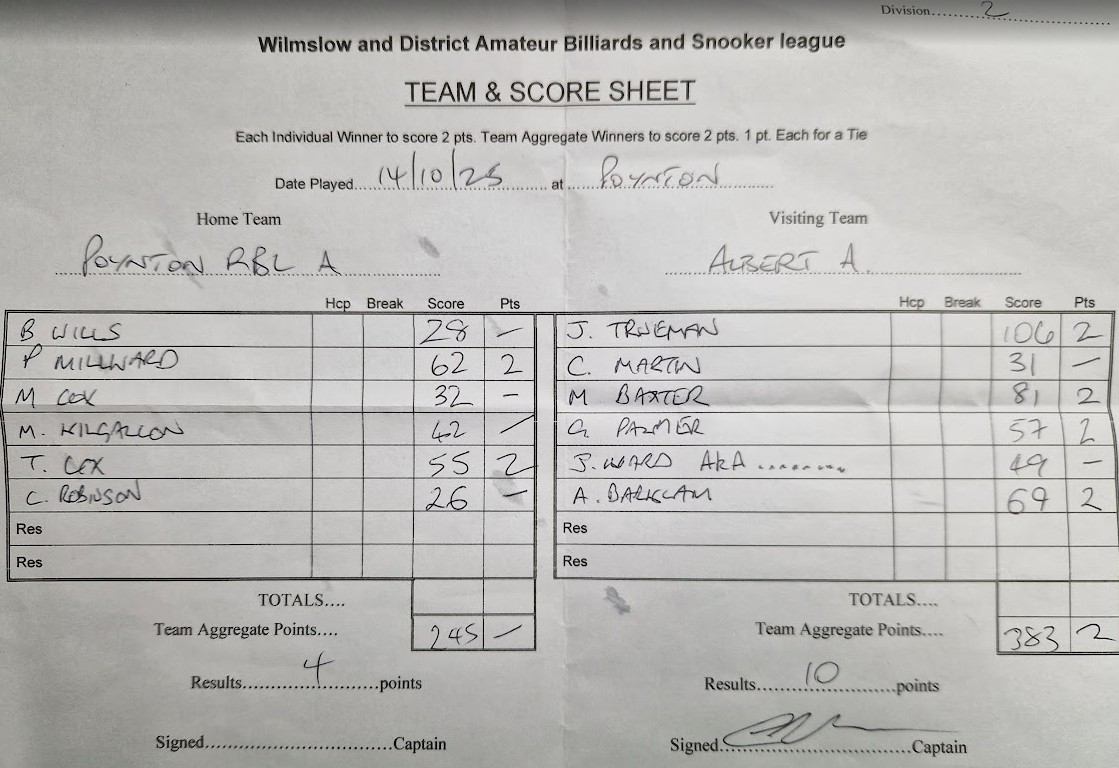 Division.......2
Wilmslow and District Amateur Billiards and Snooker league
TEAM & SCORE SHEET
Each Individual Winner to score 2 pts. Team Aggregate Winners to score 2 pts. 1 pt. Each for a Tie
Date Played....14/10/25......... at ......POYNTON.........
Home Team Visiting Team
POYNTON RBL A ALBERT A.
Hcp Break Score Pts Hcp Break Score Pts
B WILLS 28 — J. TRUEMAN 106 2
P MILLWARD 62 2 C. MARTIN 31 —
M COX 32 — M BAXTER 81 2
M. KILGALLON 42 — G. PALMER 57 2
T. COX 55 2 J. WARD AKA ......... 49 —
C. ROBINSON 26 — A. BARKLAM 69 2
Res Res
Res Res
TOTALS.... TOTALS....
Team Aggregate Points.... 245 — Team Aggregate Points.... 383 2
Results........4........points Results........10........points
Signed................................Captain Signed................................Captain